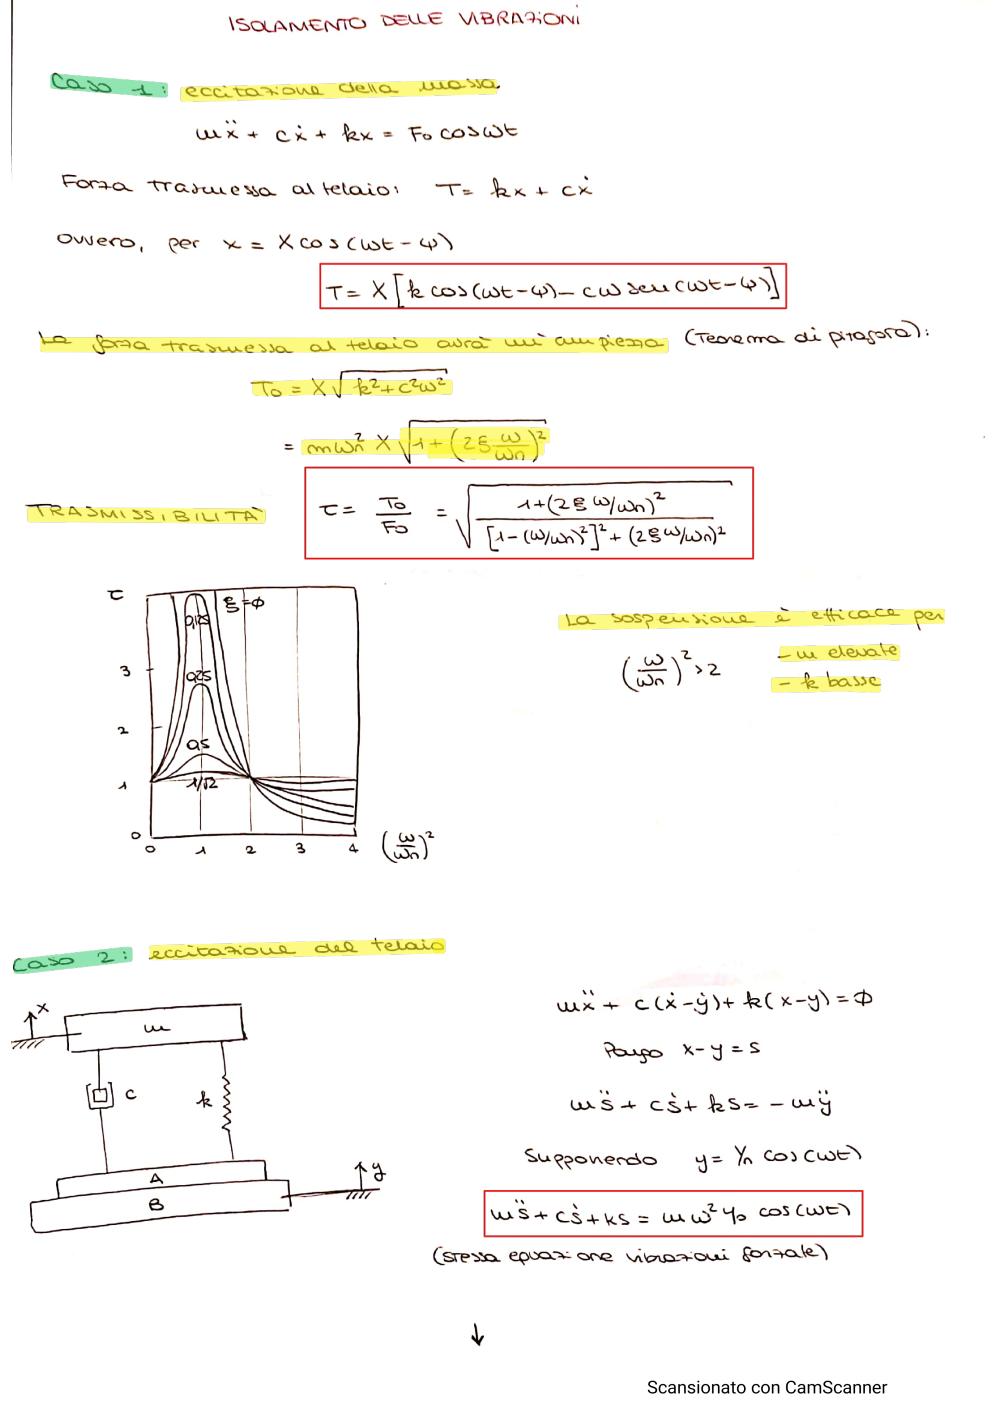 ISOLAMENTO DELLE VIBRAZIONI
Caso 1: eccitazione della massa
mẍ + cẋ + kx = F₀ cosωt
Forza trasmessa al telaio: T= kx + cẋ
ovvero, per x = X cos(ωt - φ)
T= X[k cos(ωt-φ) - cω sen(ωt-φ)]
La forza trasmessa al telaio avrà un'ampiezza (Teorema di pitagora):
T₀ = X√(k²+c²ω²)
= mωn² X √(1+(2ξ ω/ωn)²)
TRASMISSIBILITÀ τ = T₀/F₀ = √(1+(2ξ ω/ωn)² / [1-(ω/ωn)²]² + (2ξ ω/ωn)²)
τ
ξ=ϕ
0,125
3
0,25
2
0,5
1
1/√2
0
0 1 2 3 4 (ω/ωn)²
La sospensione è efficace per
(ω/ωn)² > 2
- m elevate
- k basse
Caso 2: eccitazione del telaio
x
m
c
k
A
B
y
mẍ + c(ẋ-ẏ)+ k(x-y) = ϕ
Pongo x-y = s
ms̈ + cṡ + ks = - mÿ
Supponendo y = Y₀ cos(ωt)
ms̈ + cṡ + ks = mω² Y₀ cos(ωt)
(stessa equazione vibrazioni forzate)
↓
Scansionato con CamScanner